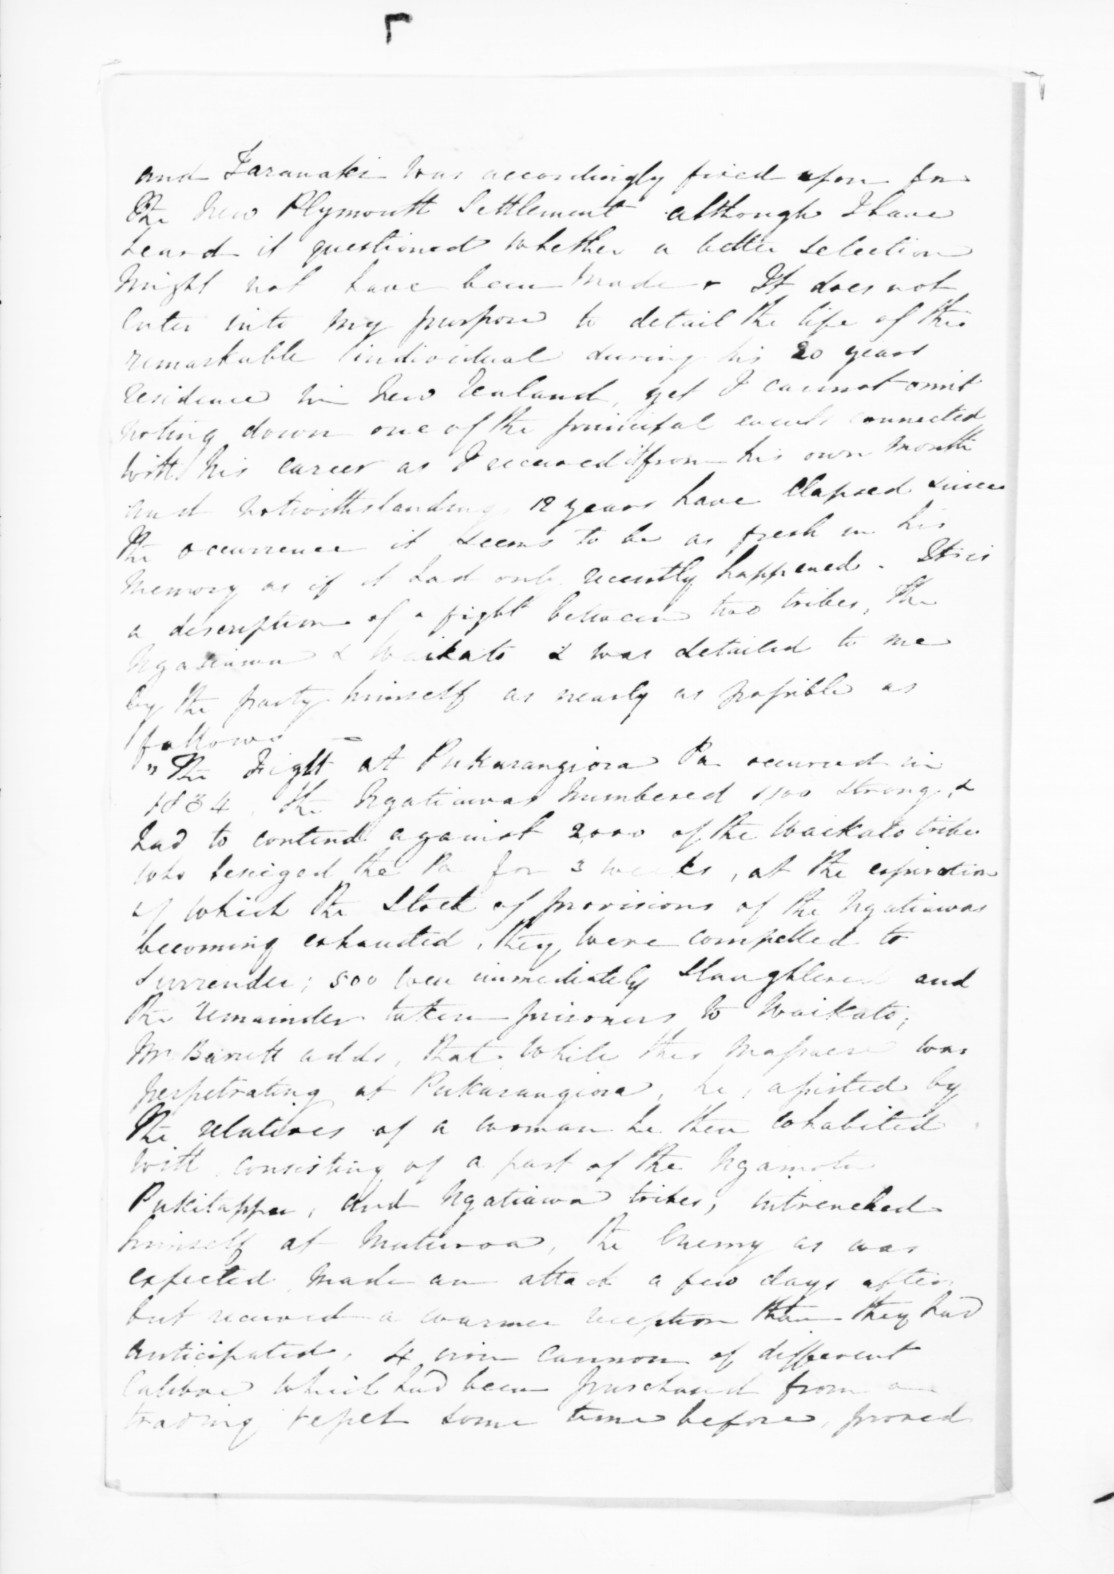 and Taranaki was accordingly fixed upon for
the New Plymouth Settlement although I have
heard it questioned whether a better selection
might not have been made. It does not
enter into my purpose to detail the life of this
remarkable individual during his 20 years
residence in New Zealand, yet I cannot omit
noting down one of the principal events connected
with his career as I received it from his own mouth
and notwithstanding 12 years have elapsed since
the occurrence it seems to be as fresh in his
memory as if it had only recently happened. It is
a description of a fight between two tribes, the
Ngatiawa & Waikato & was detailed to me
by the party himself as nearly as possible as
follows —
"The Fight at Pukarangiora Pa occurred in
1834. The Ngatiawas numbered strong, &
had to contend against 2000 of the Waikato tribe
who besieged the Pa for 3 weeks, at the expiration
of which the Stock of provisions of the Ngatiawas
becoming exhausted, they were compelled to
surrender; 500 were immediately slaughtered and
the remainder taken prisoners to Waikato;
Mr Barrett adds, that while this massacre was
perpetrating at Pukarangiora, he, assisted by
the relatives of a woman he then cohabited
with consisting of a part of the Ngamotu
Pukitappu, and Ngatiawa tribes, intrenched
himself at Muturoa, the Enemy as was
expected made an attack a few days after
but received a warmer reception than they had
anticipated, 4 iron cannon of different
Calibre which had been purchased from a
trading vessel some time before, proved